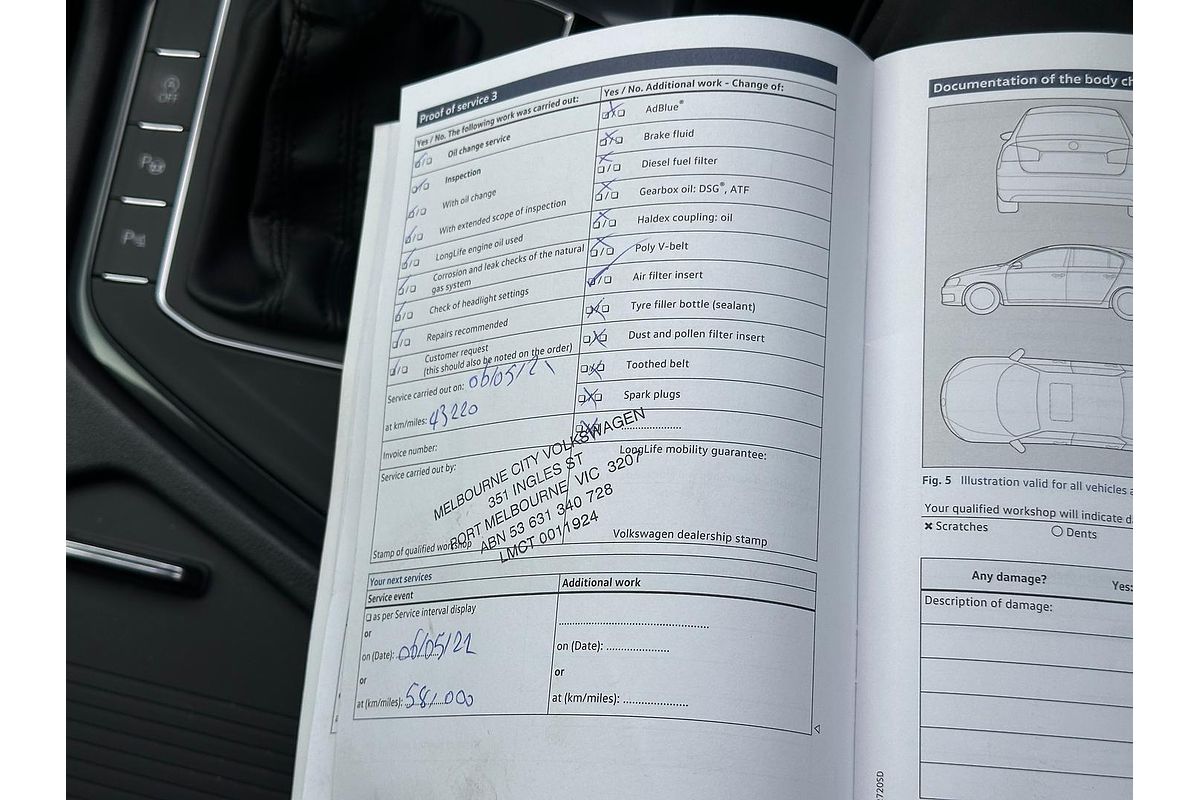 OFF
P
P
Proof of service 3
Yes / No. The following work was carried out:
Oil change service
Inspection
With oil change
With extended scope of inspection
LongLife engine oil used
Corrosion and leak checks of the natural
gas system
Check of headlight settings
Repairs recommended
Customer request
(this should also be noted on the order)
Service carried out on: 06/05/21
at km/miles: 43220
Invoice number:
Service carried out by:
Stamp of qualified workshop
Yes / No. Additional work – Change of:
AdBlue®
Brake fluid
Diesel fuel filter
Gearbox oil: DSG®, ATF
Haldex coupling: oil
Poly V-belt
Air filter insert
Tyre filler bottle (sealant)
Dust and pollen filter insert
Toothed belt
Spark plugs
LongLife mobility guarantee:
Volkswagen dealership stamp
MELBOURNE CITY VOLKSWAGEN
351 INGLES ST
PORT MELBOURNE VIC 3207
ABN 53 631 340 728
LMCT 0011924
Your next services
Service event
as per Service interval display
or
on (Date): 06/05/22
or
at (km/miles): 58,000
Additional work
on (Date):
or
at (km/miles):
Documentation of the body
Fig. 5 Illustration valid for all vehicles
Your qualified workshop will indicate
× Scratches
Dents
Any damage?
Yes:
Description of damage:
720SD